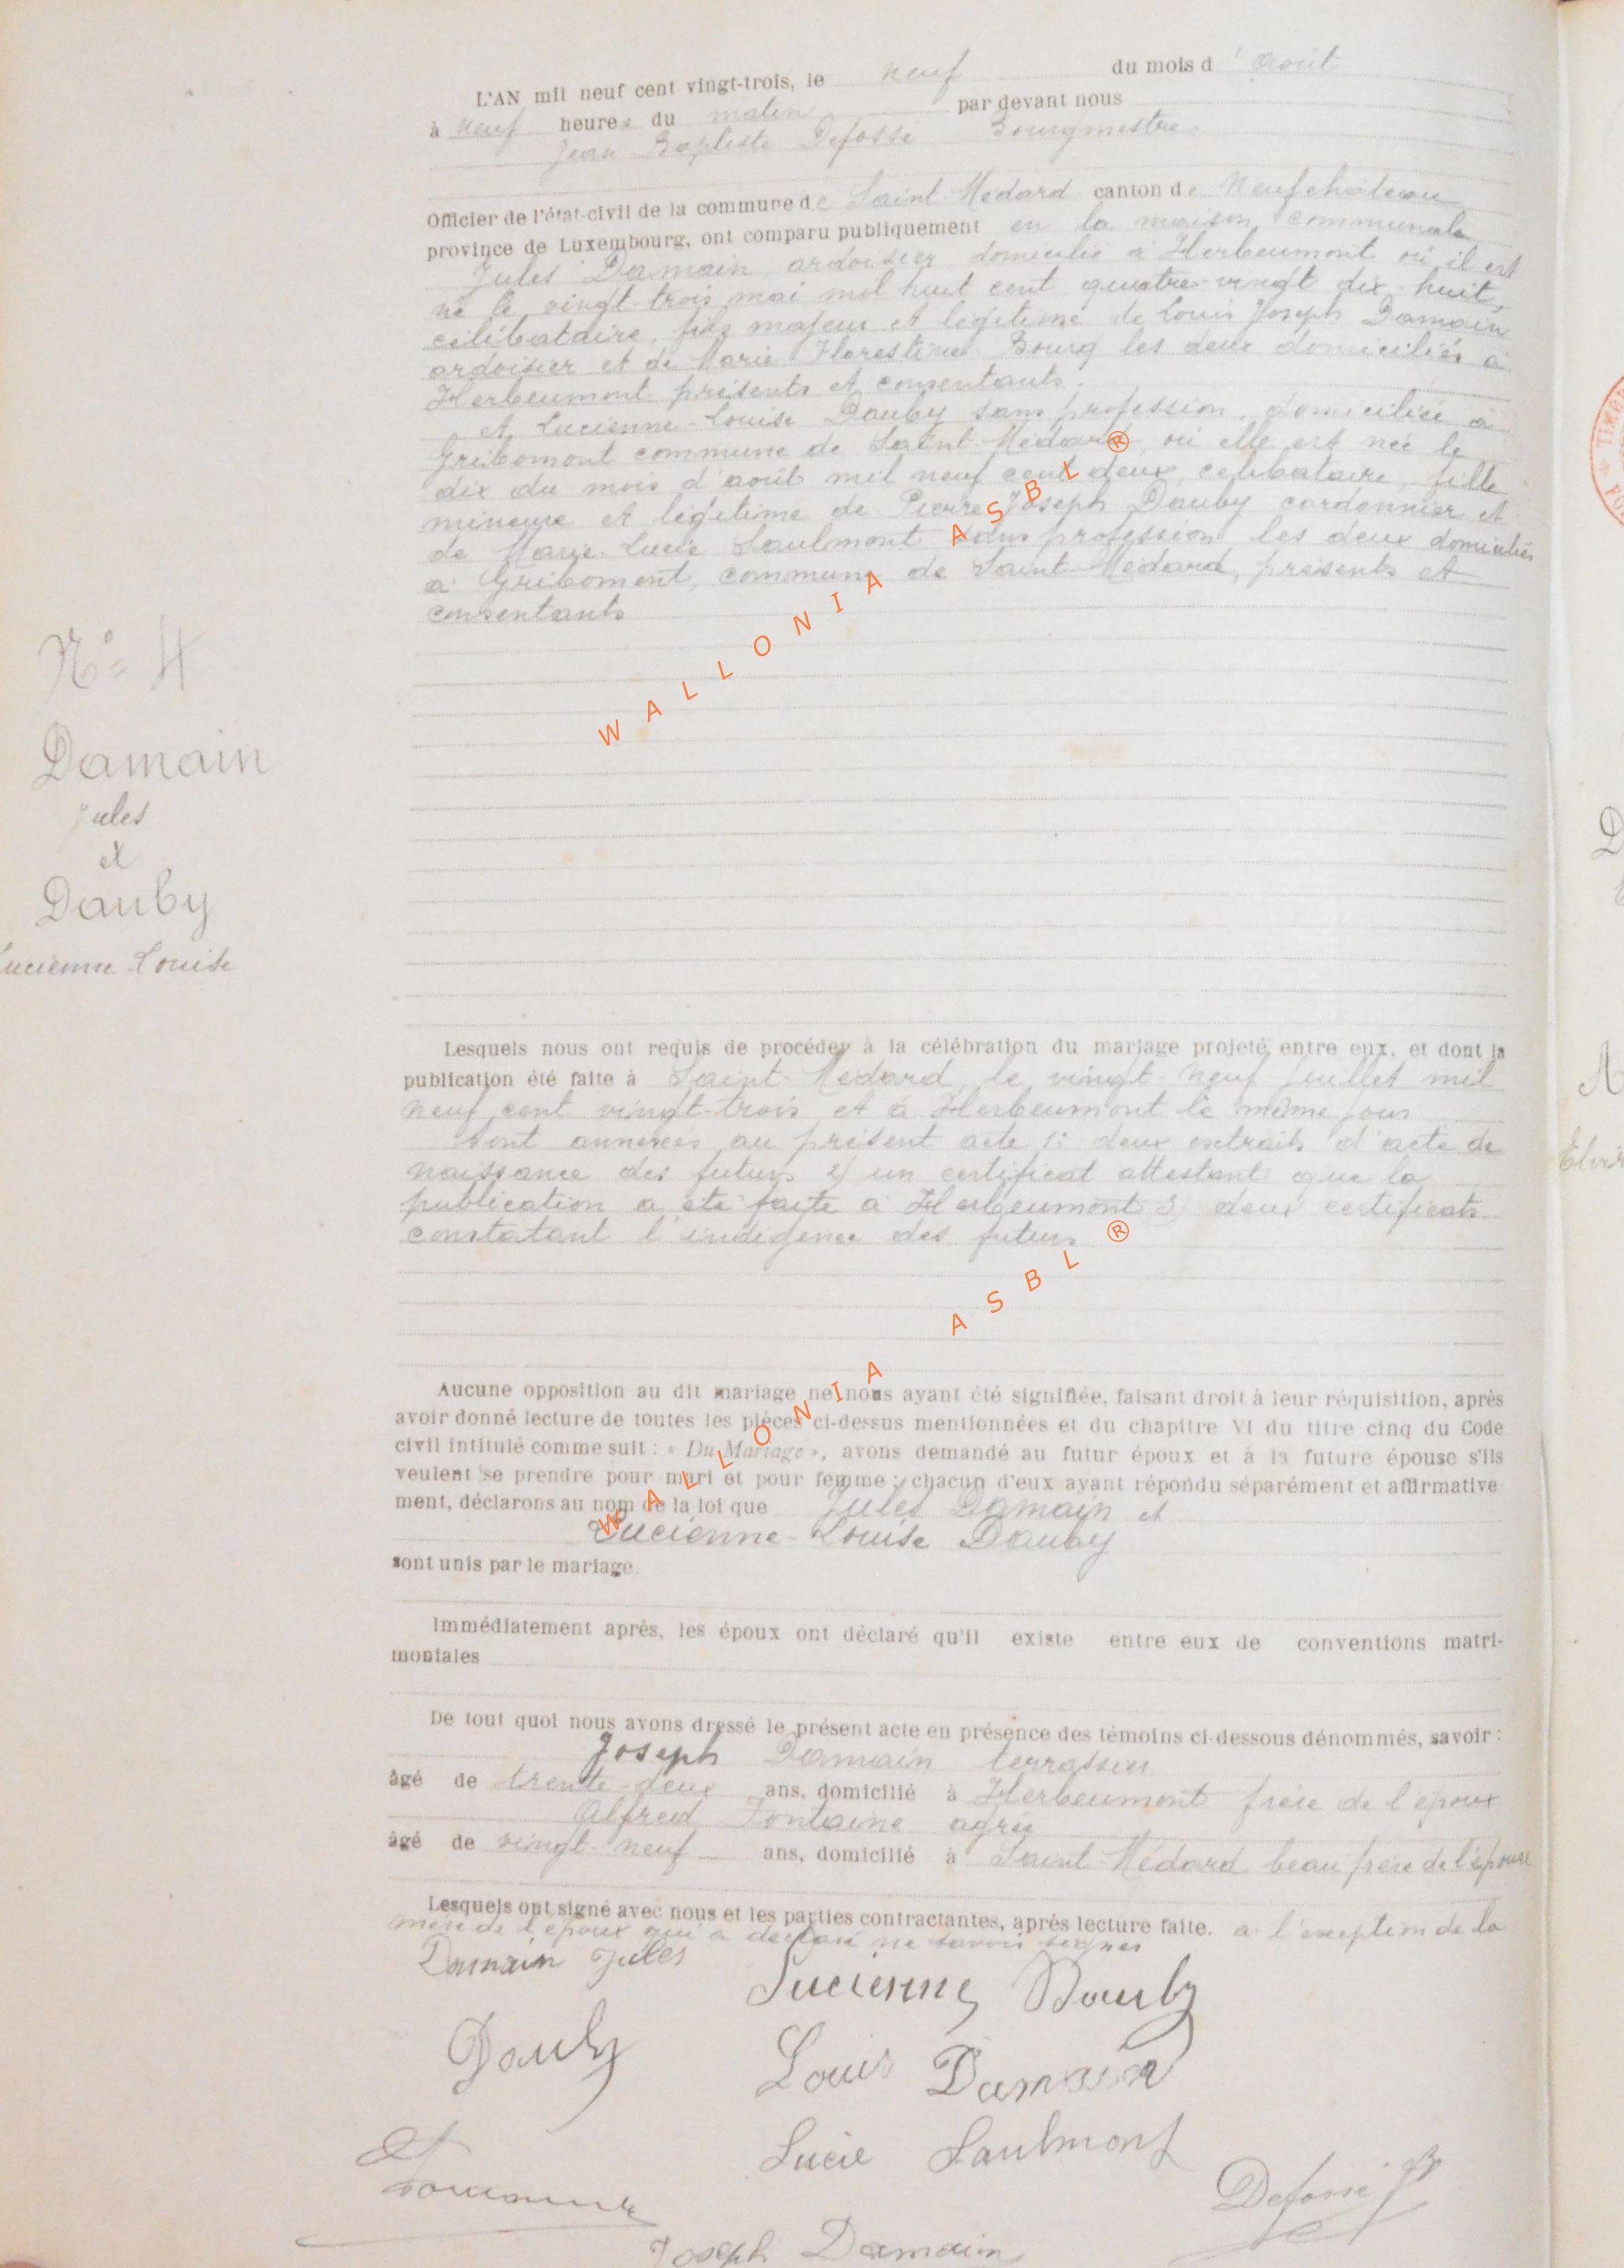 L'AN mil neuf cent vingt-trois, le neuf du mois d'août
à neuf heures du matin par devant nous
Jean Baptiste Defossé Bourgmestre
Officier de l'état-civil de la commune de Saint-Médard canton de Neufchâteau
province de Luxembourg, ont comparu publiquement en la maison communale
Jules Damain ardoisier domicilié à Herbeumont où il est
né le vingt-trois mai mil huit cent quatre-vingt dix-huit,
célibataire, fils majeur et légitime de Louis Joseph Damain
ardoisier et de Marie Florestine Bourg les deux domiciliés à
Herbeumont présents et consentants.
et Lucienne-Louise Dauby sans profession, domiciliée à
Gribomont commune de Saint-Médard, où elle est née le
dix du mois d'août mil neuf cent deux, célibataire, fille
mineure et légitime de Pierre Joseph Dauby cordonnier et
de Marie-Lucie Saulmont sans profession les deux domiciliés
à Gribomont, commune de Saint-Médard, présents et
consentants
N° 4
Damain
Jules
et
Dauby
Lucienne-Louise
Lesquels nous ont requis de procéder à la célébration du mariage projeté entre eux, et dont la
publication été faite à Saint-Médard, le vingt-neuf juillet mil
neuf cent vingt-trois et à Herbeumont le même jour
Sont annexés au présent acte 1° deux extraits d'acte de
naissance des futurs 2) un certificat attestant que la
publication a été faite à Herbeumont 3) deux certificats
constatant l'indigence des futurs
Aucune opposition au dit mariage ne nous ayant été signifiée, faisant droit à leur réquisition, après
avoir donné lecture de toutes les pièces ci-dessus mentionnées et du chapitre VI du titre cinq du Code
civil intitulé comme suit : « Du Mariage », avons demandé au futur époux et à la future épouse s'ils
veulent se prendre pour mari et pour femme ; chacun d'eux ayant répondu séparément et affirmative
ment, déclarons au nom de la loi que Jules Damain et
Lucienne-Louise Dauby
sont unis par le mariage.
Immédiatement après, les époux ont déclaré qu'il existe entre eux de conventions matri-
moniales
De tout quoi nous avons dressé le présent acte en présence des témoins ci-dessous dénommés, savoir :
Joseph Damain terrassier
âgé de trente-deux ans, domicilié à Herbeumont frère de l'époux
Alfred Fontaine agréé
âgé de vingt-neuf ans, domicilié à Saint-Médard beau frère de l'épouse
Lesquels ont signé avec nous et les parties contractantes, après lecture faite. à l'exception de la
mère de l'époux qui a déclaré ne savoir signer
Damain Jules
Lucienne Dauby
Dauby
Louis Damain
Lucie Saulmont
Defossé JB
Joseph Damain
WALLONIA ASBL ®
WALLONIA ASBL ®